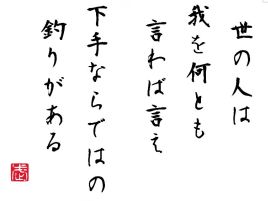 世の人は
我を何とも
言わば言え
下手ならではの
釣りがある